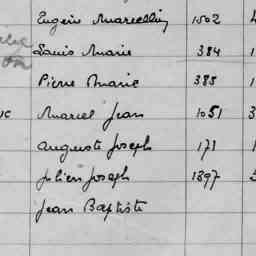 Eugène Marcellin 1502
Louis Marie 384 1
Pierre Marie 385 1
Marcel Jean 1051 3
Auguste Joseph 171 1
Julien Joseph 1397
Jean Baptiste